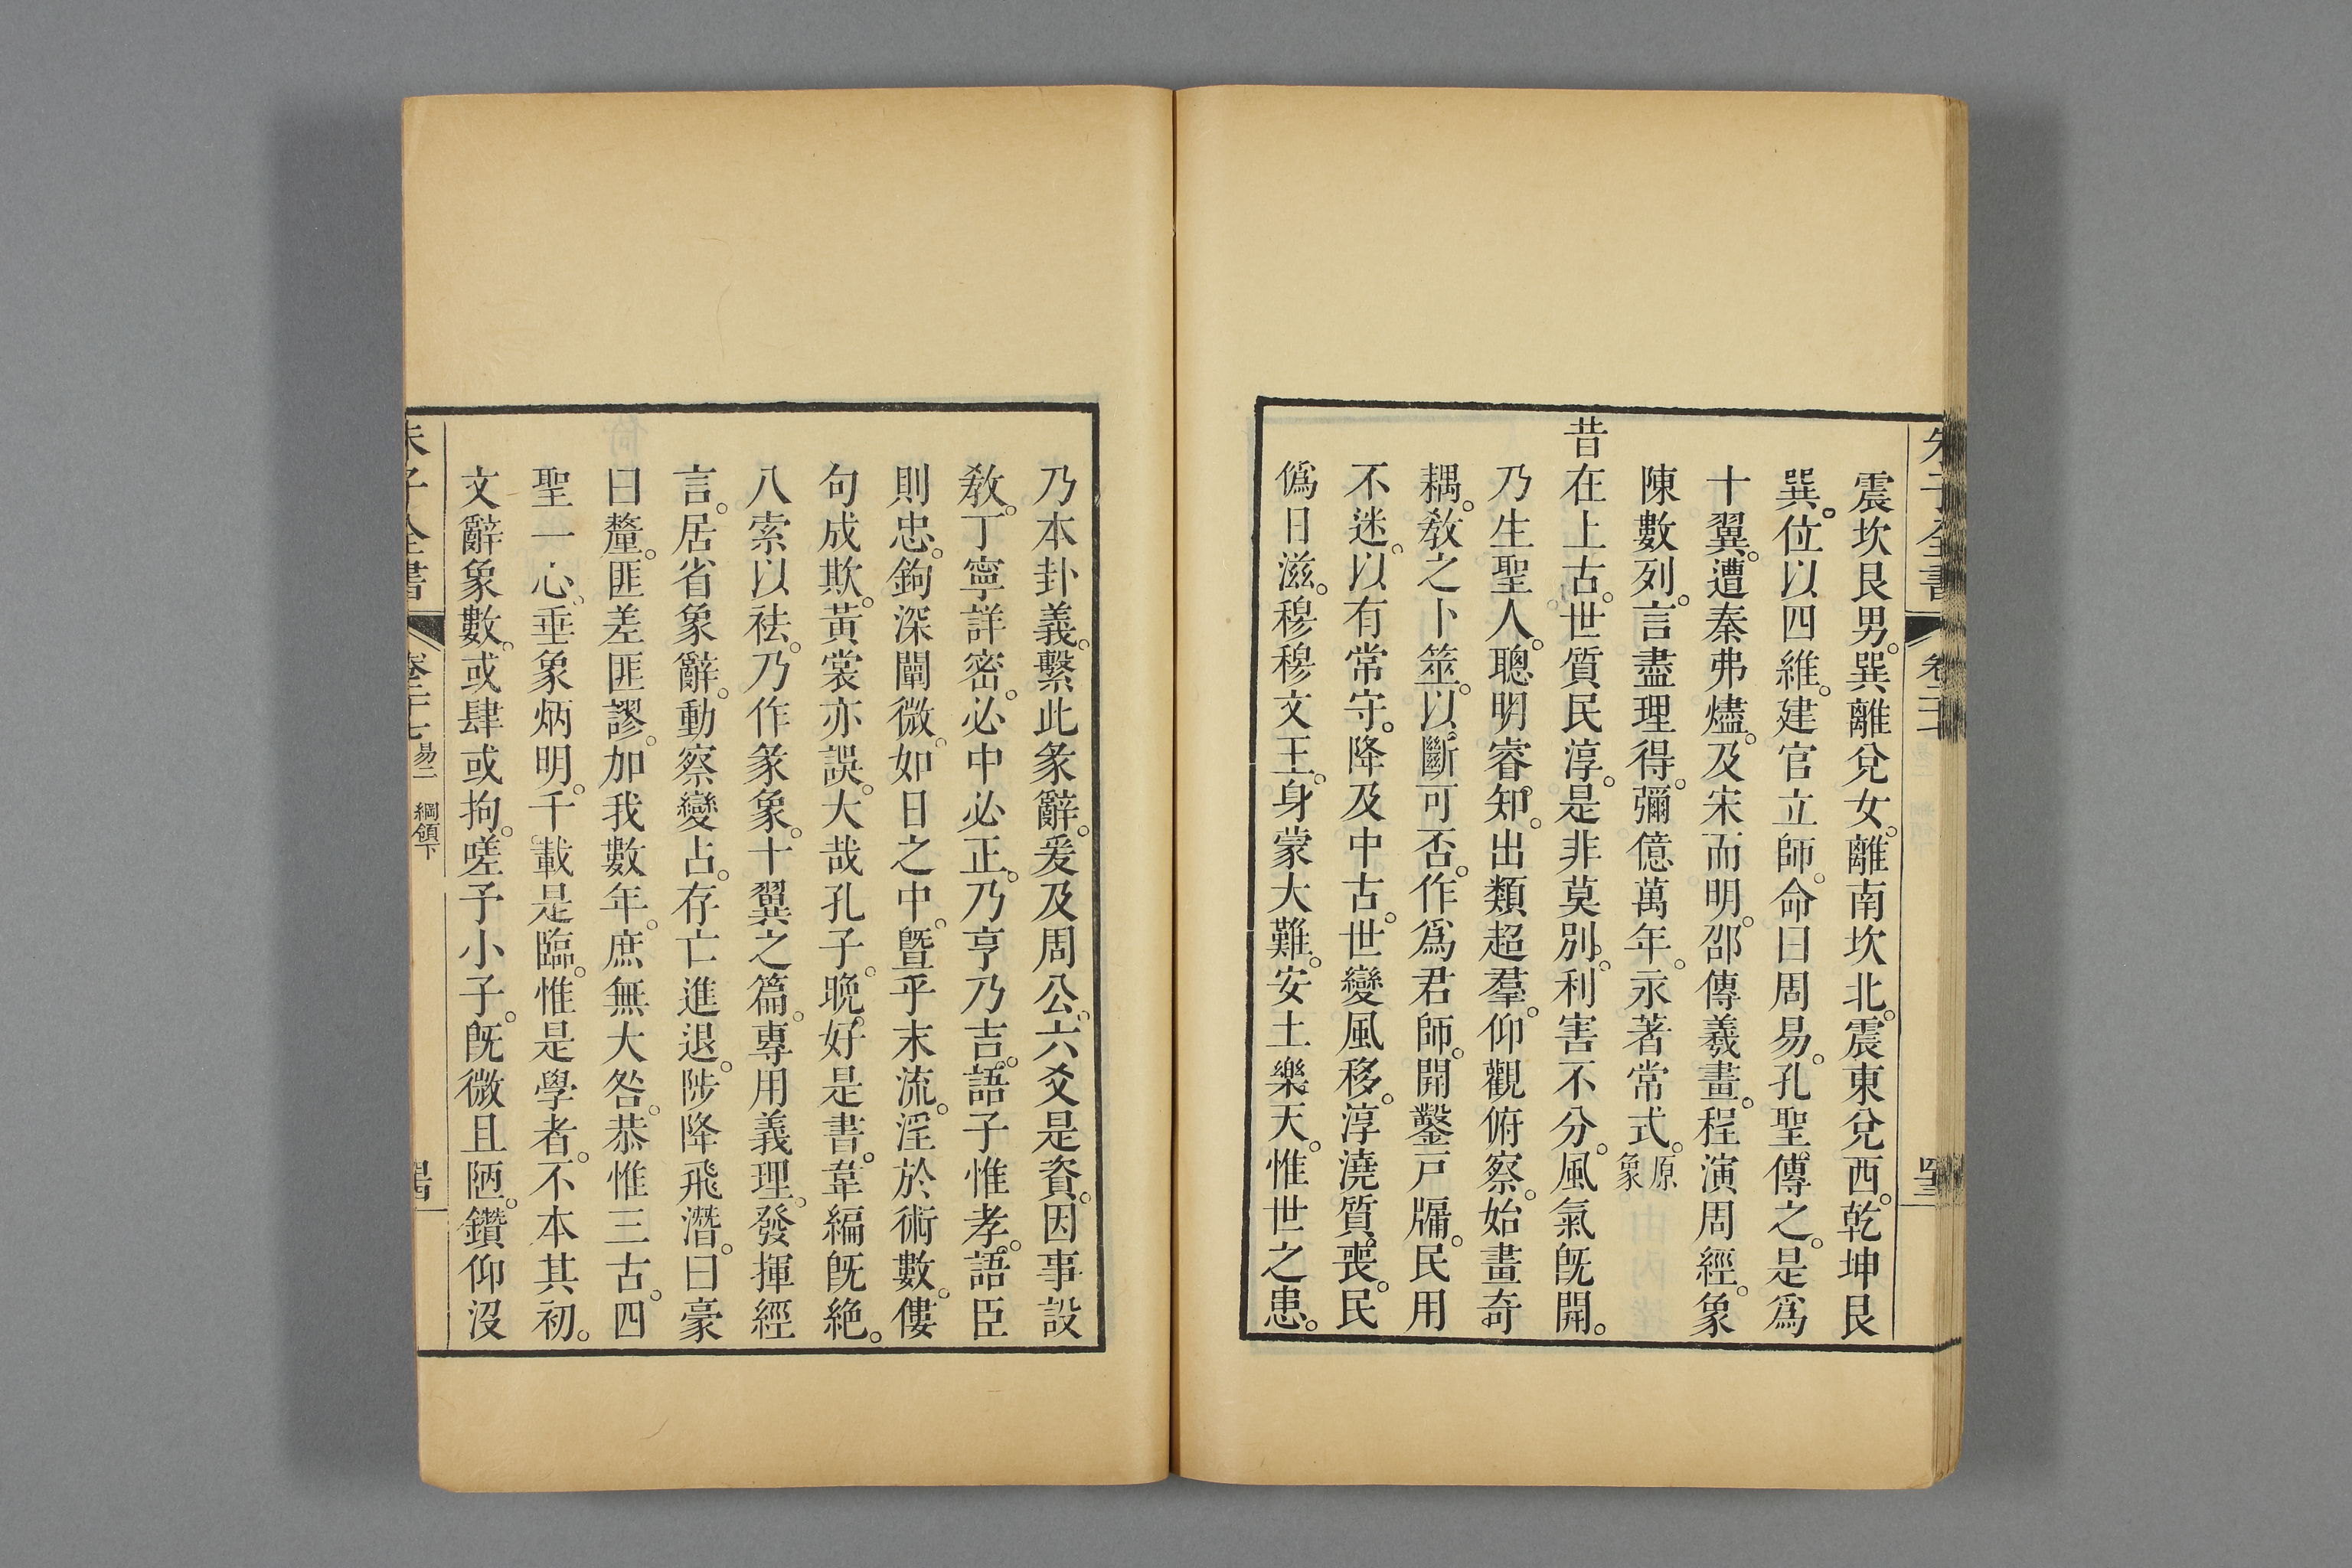 朱子全書 卷二十七
震坎艮男。巽離兌女。離南坎北。震東兌西。乾坤艮
巽。位以四維。建官立師。命曰周易。孔聖傳之。是爲
十翼。遭秦弗燼。及宋而明。邵傳羲畫。程演周經。象
陳數列。言盡理得。彌億萬年。永著常式。原象
昔在上古。世質民淳。是非莫別。利害不分。風氣既開。
乃生聖人。聰明睿知。出類超羣。仰觀俯察。始畫奇
耦。教之卜筮。以斷可否。作爲君師。開鑿戸牖。民用
不迷。以有常守。降及中古。世變風移。淳澆質喪。民
僞日滋。穆穆文王。身蒙大難。安土樂天。惟世之患。
乃本卦義。繫此彖辭。爰及周公。六爻是資。因事設
教。丁寧詳密。必中必正。乃亨乃吉。語子惟孝。語臣
則忠。鉤深闡微。如日之中。曁乎末流。淫於術數。僂
句成欺。黃裳亦誤。大哉孔子。晚好是書。韋編既絶。
八索以祛。乃作彖象。十翼之篇。專用義理。發揮經
言。居省象辭。動察變占。存亡進退。陟降飛潛。曰豪
曰釐。匪差匪謬。加我數年。庶無大咎。恭惟三古。四
聖一心。垂象炳明。千載是臨。惟是學者。不本其初。
文辭象數。或肆或拘。嗟予小子。既微且陋。鑽仰沒
朱子全書 卷二十七 易二 綱領下